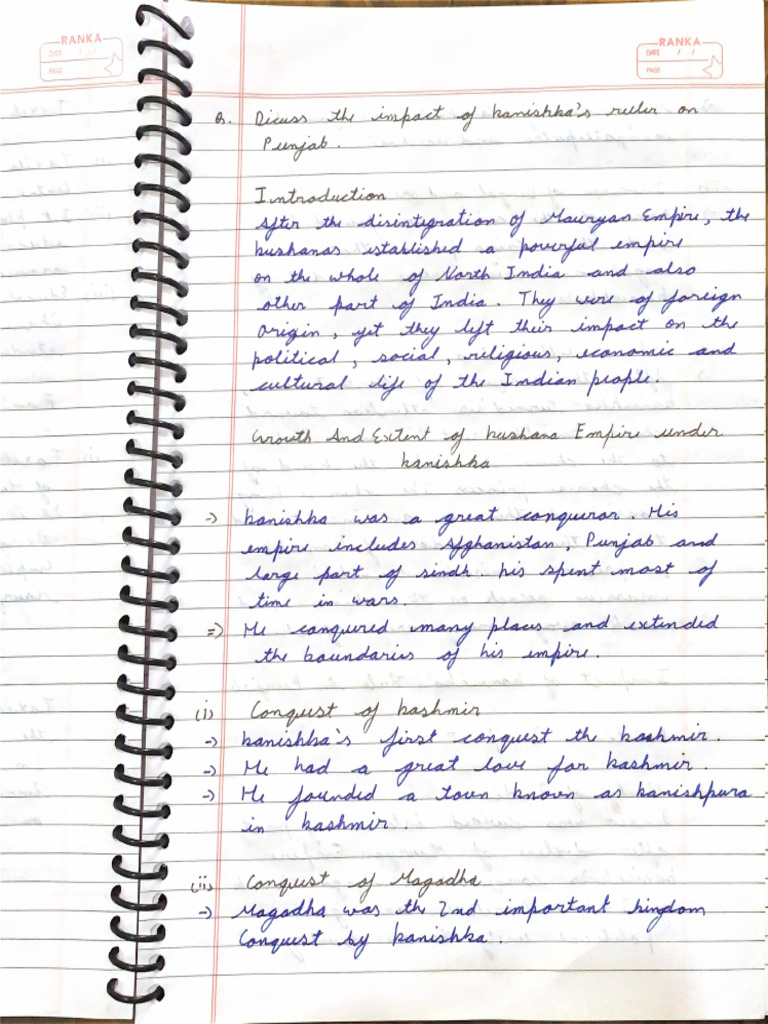 RANKA
DATE / /
PAGE
RANKA
DATE / /
PAGE
Q. Dicuss the impact of kanishka's ruler on
Punjab.
Introduction
After the disintegration of Mauryan Empire, the
kushanas established a powerful empire
on the whole of North India and also
other part of India. They were of foreign
origin, yet they left their impact on the
political, social, religious, economic and
cultural life of the Indian people.
Growth And Extent of kushana Empire under
kanishka
-) kanishka was a great conqueror. His
empire includes Afghanistan, Punjab and
large part of sindh. his spent most of
time in wars.
=) He conquered many places and extended
the boundaries of his empire.
(i) Conquest of kashmir
-) kanishka's first conquest the kashmir.
-) He had a great love for kashmir.
-) He founded a town known as kanishpura
in kashmir.
(ii) Conquest of Magadha
-) Magadha was the 2nd important kingdom
Conquest by kanishka.